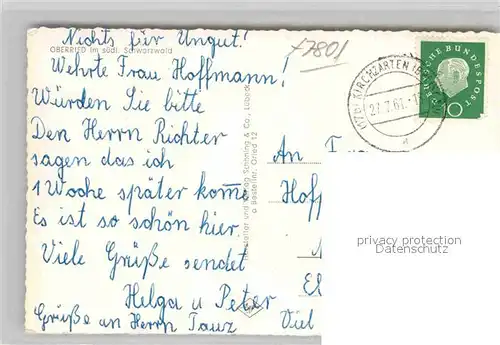 Nichts für Ungut!
OBERRIED im südl. Schwarzwald
+7801
Wehrte Frau Hoffmann!
Würden Sie bitte
Den Herrn Richter
sagen das ich
1 Woche später kom̅e
Es ist so schön hier
Viele Grüße sendet
Helga u Peter
Grüße an Herrn Tauz
Schöning & Co., Lübeck
Bestellnr. Oried 12
(17b) KIRCHZARTEN
27.7.61.
DEUTSCHE BUNDESPOST
10
An F
Hoff
El
Viel
privacy protection
Datenschutz